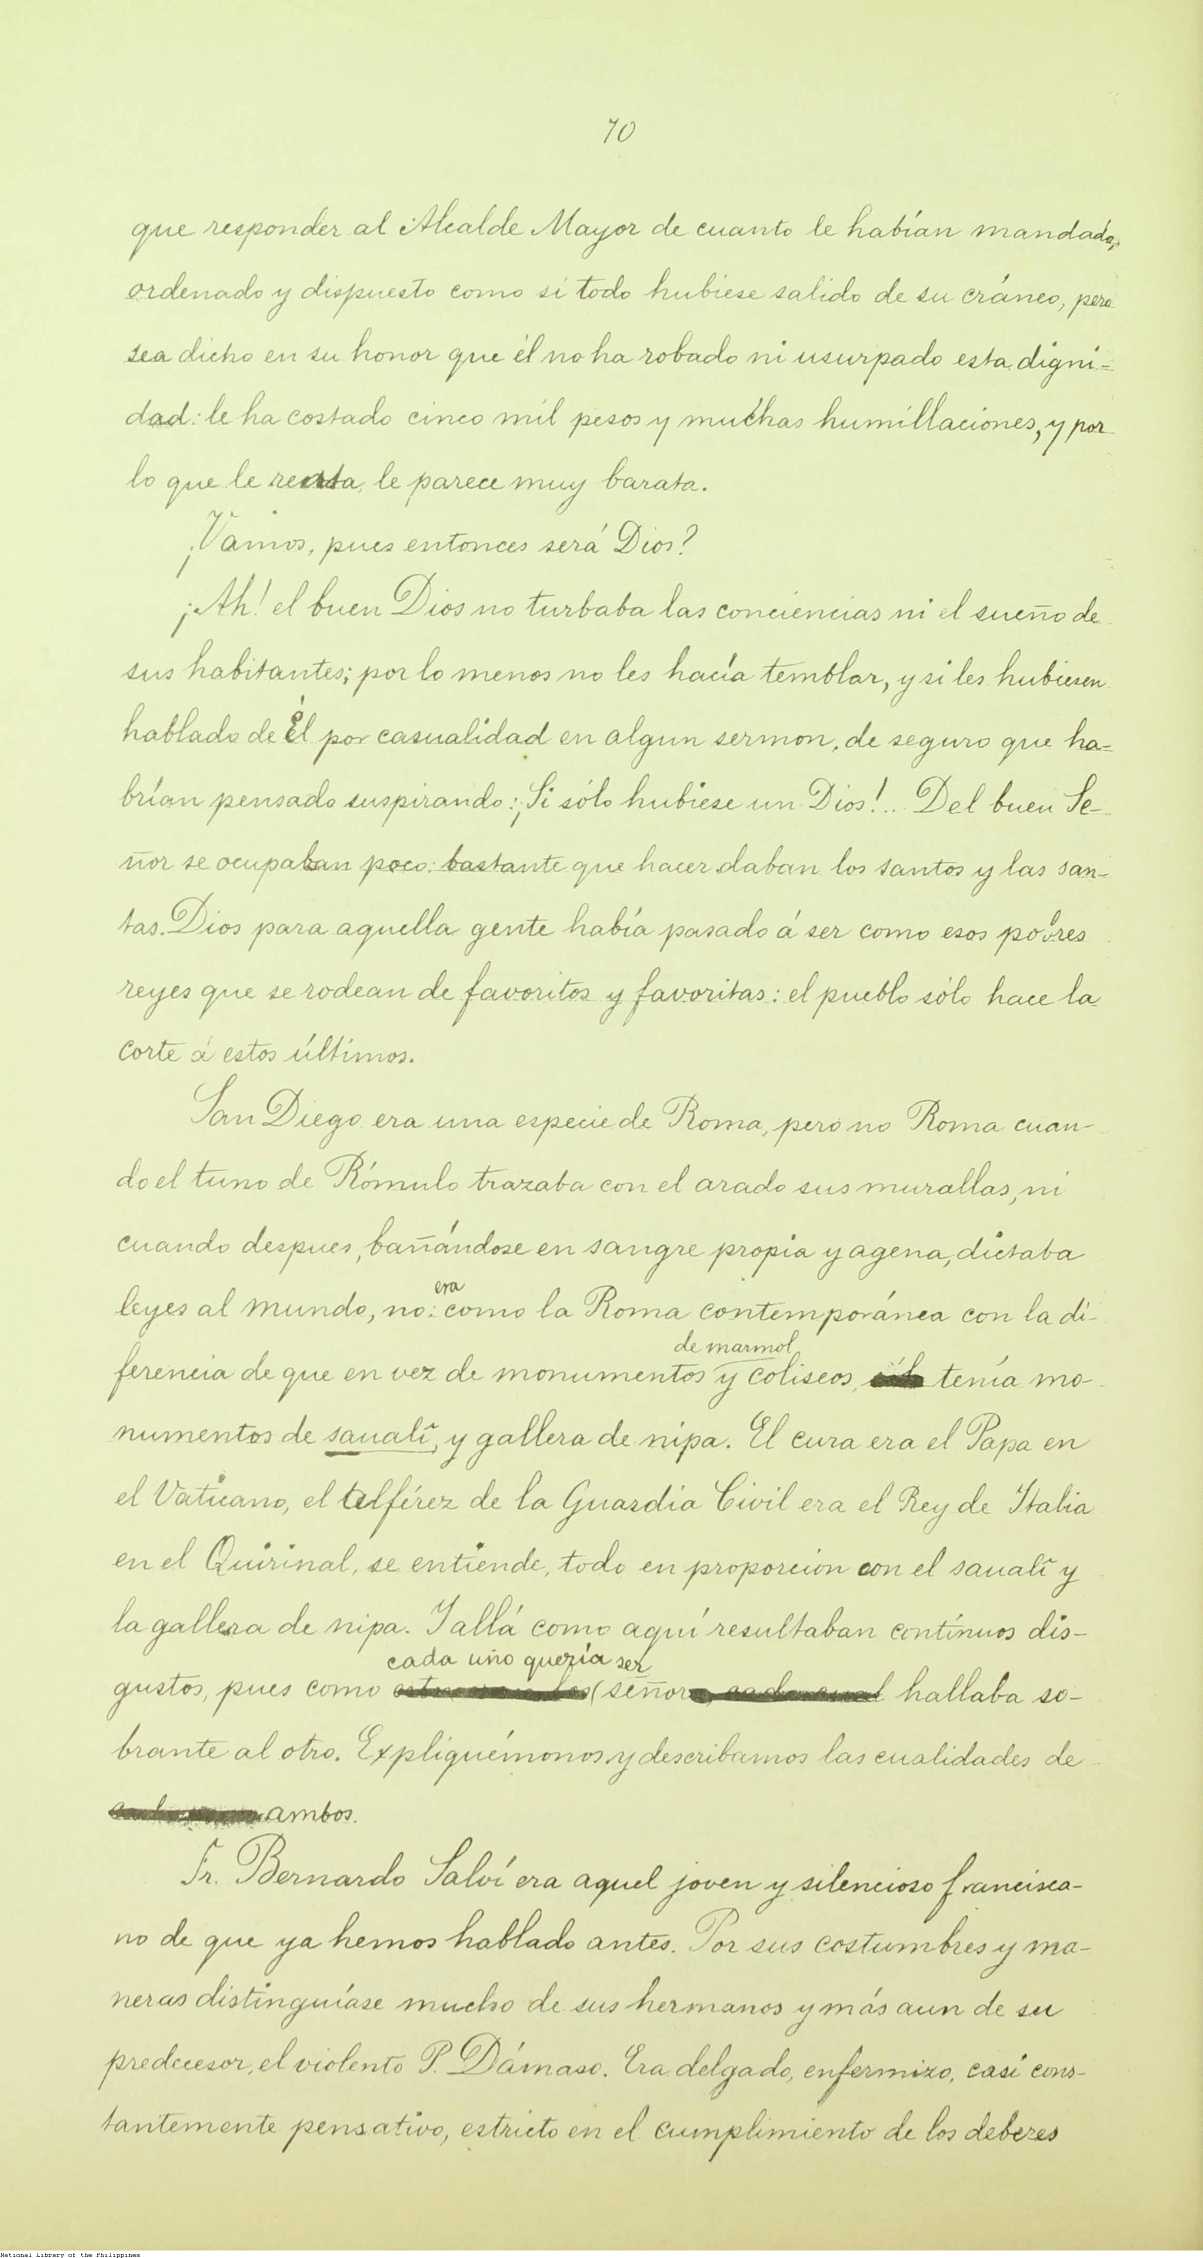 70
que responder al Alcalde Mayor de cuanto le habían mandado,
ordenado y dispuesto como si todo hubiese salido de su cráneo, pero
sea dicho en su honor que él no ha robado ni usurpado esta digni=
dad: le ha costado cinco mil pesos y muchas humillaciones, y por
lo que le renta, le parece muy barata.
¡Vamos, pues entonces será Dios?
¡Ah! el buen Dios no turbaba las conciencias ni el sueño de
sus habitantes; por lo menos no les hacía temblar, y si les hubiesen
hablado de Él por casualidad en algun sermon, de seguro que ha=
brían pensado suspirando: ¡Si sólo hubiese un Dios!.. Del buen Se-
ñor se ocupaban poco: bastante que hacer daban los santos y las san-
tas. Dios para aquella gente había pasado á ser como esos pobres
reyes que se rodean de favoritos y favoritas: el pueblo sólo hace la
corte á estos últimos.
San Diego era una especie de Roma, pero no Roma cuan-
do el tuno de Rómulo trazaba con el arado sus murallas, ni
cuando despues, bañándose en sangre propia y agena, dictaba
era
leyes al mundo, no: como la Roma contemporánea con la di-
de marmol
ferencia de que en vez de monumentos y coliseos, tenía mo-
numentos de saualî, y gallera de nipa. El cura era el Papa en
el Vaticano, el alférez de la Guardia Civil era el Rey de Italia
en el Quirinal, se entiende, todo en proporcion con el saualî y
la gallera de nipa. Y allá como aquí resultaban contínuos dis-
cada uno quería ser
gustos, pues como señor hallaba so-
brante al otro. Expliquémonos y describamos las cualidades de
ambos.
Fr. Bernardo Salví era aquel joven y silencioso francisca-
no de que ya hemos hablado antes. Por sus costumbres y ma-
neras distinguíase mucho de sus hermanos y más aun de su
predecesor, el violento P. Dámaso. Era delgado, enfermizo, casi cons-
tantemente pensativo, estricto en el cumplimiento de los deberes
National Library of the Philippines